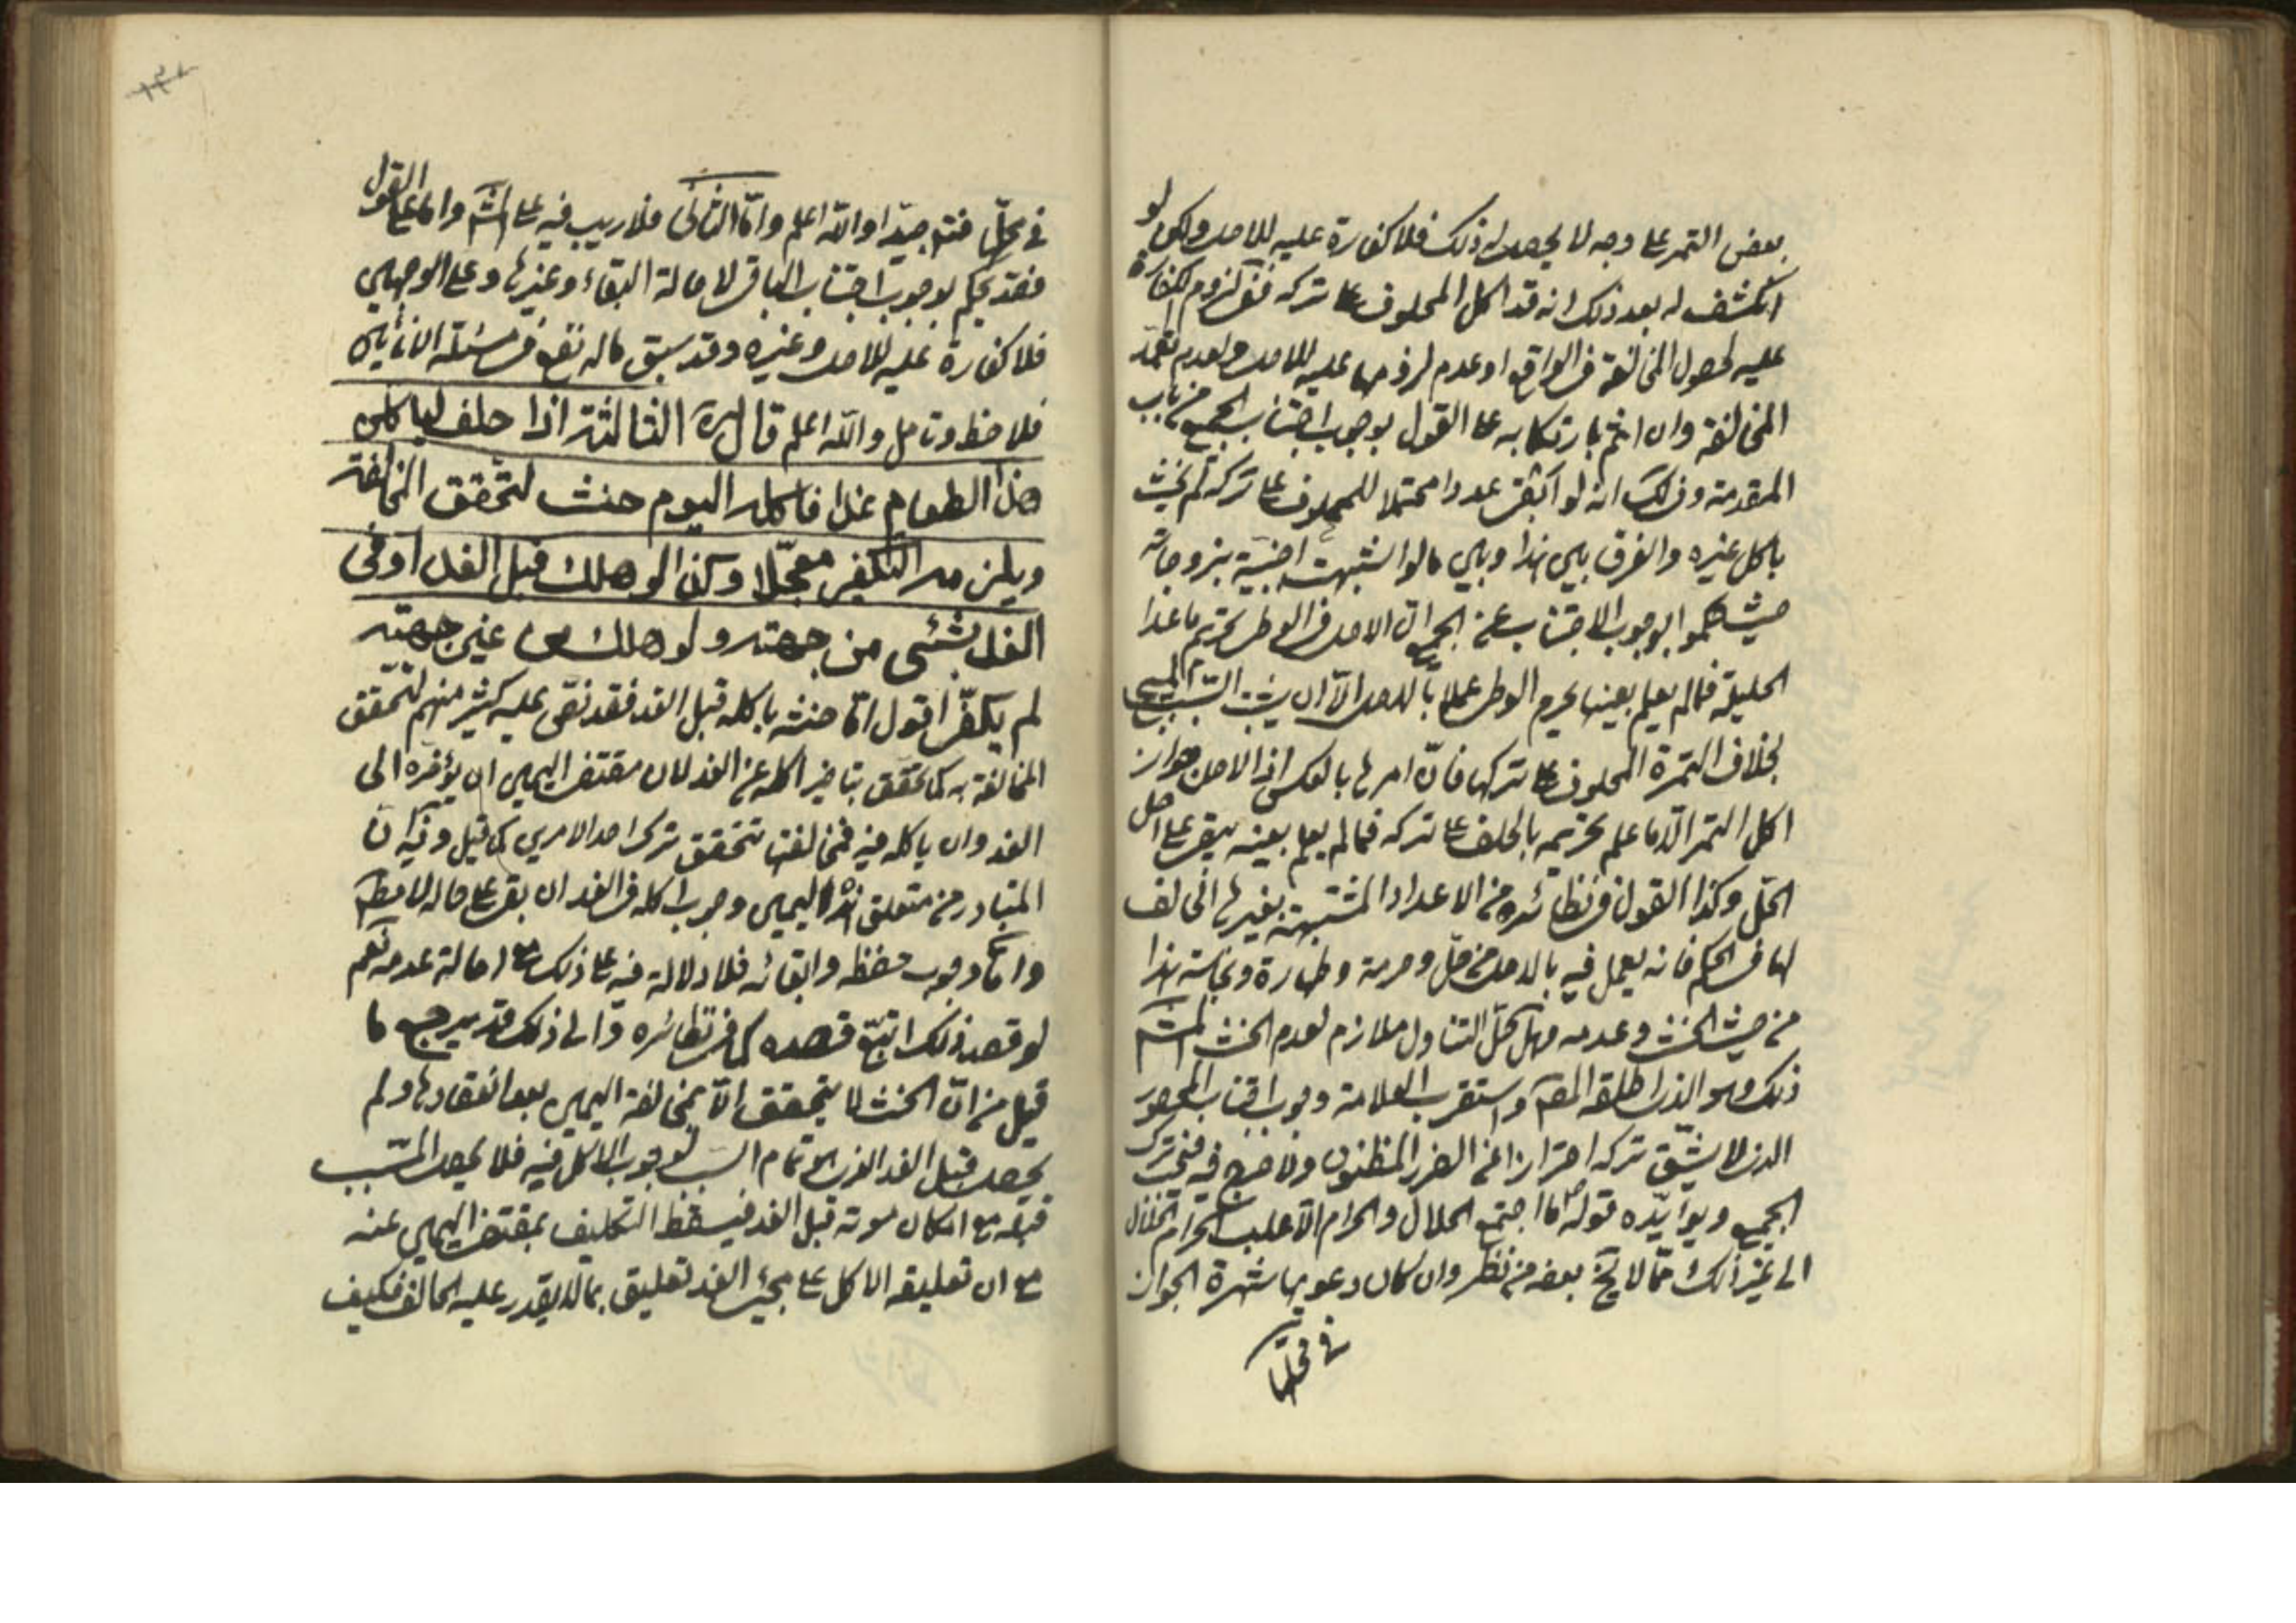 بعض التمر على وجه لا يحصل له ذلك فلا كفارة عليه للاصل ولكن لو
انكشف له بعد ذلك انه قد اكل المحلوف على تركه ففى لزوم الكفارة
عليه لحصول المخالفة فى الواقع او عدم لزومها عليه للاصل ولعدم تعمد
المخالفة وان اثم بارتكابه على القول بوجوب اجتناب الجميع من باب
المقدمة وذلك انه لو ابقى عددا محتملا للمحلوف على تركه لم يحنث
باكل غيره والفرق بين هذا وبين ما لو اشتبهت اجنبية بزوجاته
حيث حكموا بوجوب الاجتناب عن الجميع ان الاصل فى الوطى تحريم ما عدا
الحليلة فما لم يعلم بعينها يحرم الوطى عملا بالاصل الا ان يثبت السبب المبيح
بخلاف التمرة المحلوف على تركها فان امرها بالعكس اذ الاصل جواز
اكل التمر الا ما علم تحريمه بالحلف على تركه فما لم يعلم بعينه يبقى على اصل
الحل وكذا القول فى نظائره من الاعداد المشتبهة بغيرها المخالف
لها فى الحكم فانه يعمل فيه بالاصل من حل وحرمة وطهارة ونجاسة هذا
من حيث الحنث وعدمه وهل حل التناول ملازم لعدم الحنث المشهور
ذلك وهو الذى اطلقه المصـ واستقرب العلامة وجوب اجتناب المحصور
الذى لا يشق تركه احترازا عن الضرر المظنون ولا حرج فيه فيترك
الجميع ويؤيده قوله ما اجتمع الحلال والحرام الا غلب الحرام الحلال
الى غير ذلك مما لا يخ بعضه من نظر وان كان دعويها شهرة الجواز
فى محلها
فى محلها فتم جيدا والله اعلم واما الثانى فلا ريب فيه على المشـ واما على القول
فقد يحكم بوجوب اجتناب الباقى لاصالة البقاء وغيرها وعلى الوجهين
فلا كفارة عليه للاصل وغيره وقد سبق ما له نفع فى مسئلة الانائين
فلاحظ وتامل والله اعلم قال ره الثالثة اذا حلف لياكلن
هذا الطعام غدا فاكله اليوم حنث لتحقق المخالفة
ويلزمه التكفير معجلا وكذا لو هلك قبل الغد او فى
الغد بشئى من جهته ولو هلك من غير جهته
لم يكفر اقول اما حنثه باكله قبل الغد فقد نص عليه كثير منهم لتحقق
المخالفة به كما تحقق بتاخير اكله عن الغد لان مقتضى اليمين ان يؤخره الى
الغد وان ياكله فيه فمخالفتها تتحقق بترك احد الامرين كما قيل وفيه ان
المتبادر من متعلق هذا اليمين وجوب اكله فى الغد ان بقى على حاله لا مطـ
واما وجوب حفظه وابقائه فلا دلالة فيه على ذلك مع اصالة عدمه نعم
لو قصد ذلك اتبع قصده كما فى نظائره والى ذلك قد يرجع ما
قيل من ان الحنث لا يتحقق الا بمخالفة اليمين بعد انعقادها ولم
يحصل قبل الغد الذى هو تمام السبب لوجوب الاكل فيه فلا يحصل المسبب
قبله مع امكان موته قبل الغد فيسقط التكليف بمقتضى اليمين عنه
مع ان تعليقه الاكل على مجيئ الغد تعليق بما لا يقدر عليه الحالف فكيف